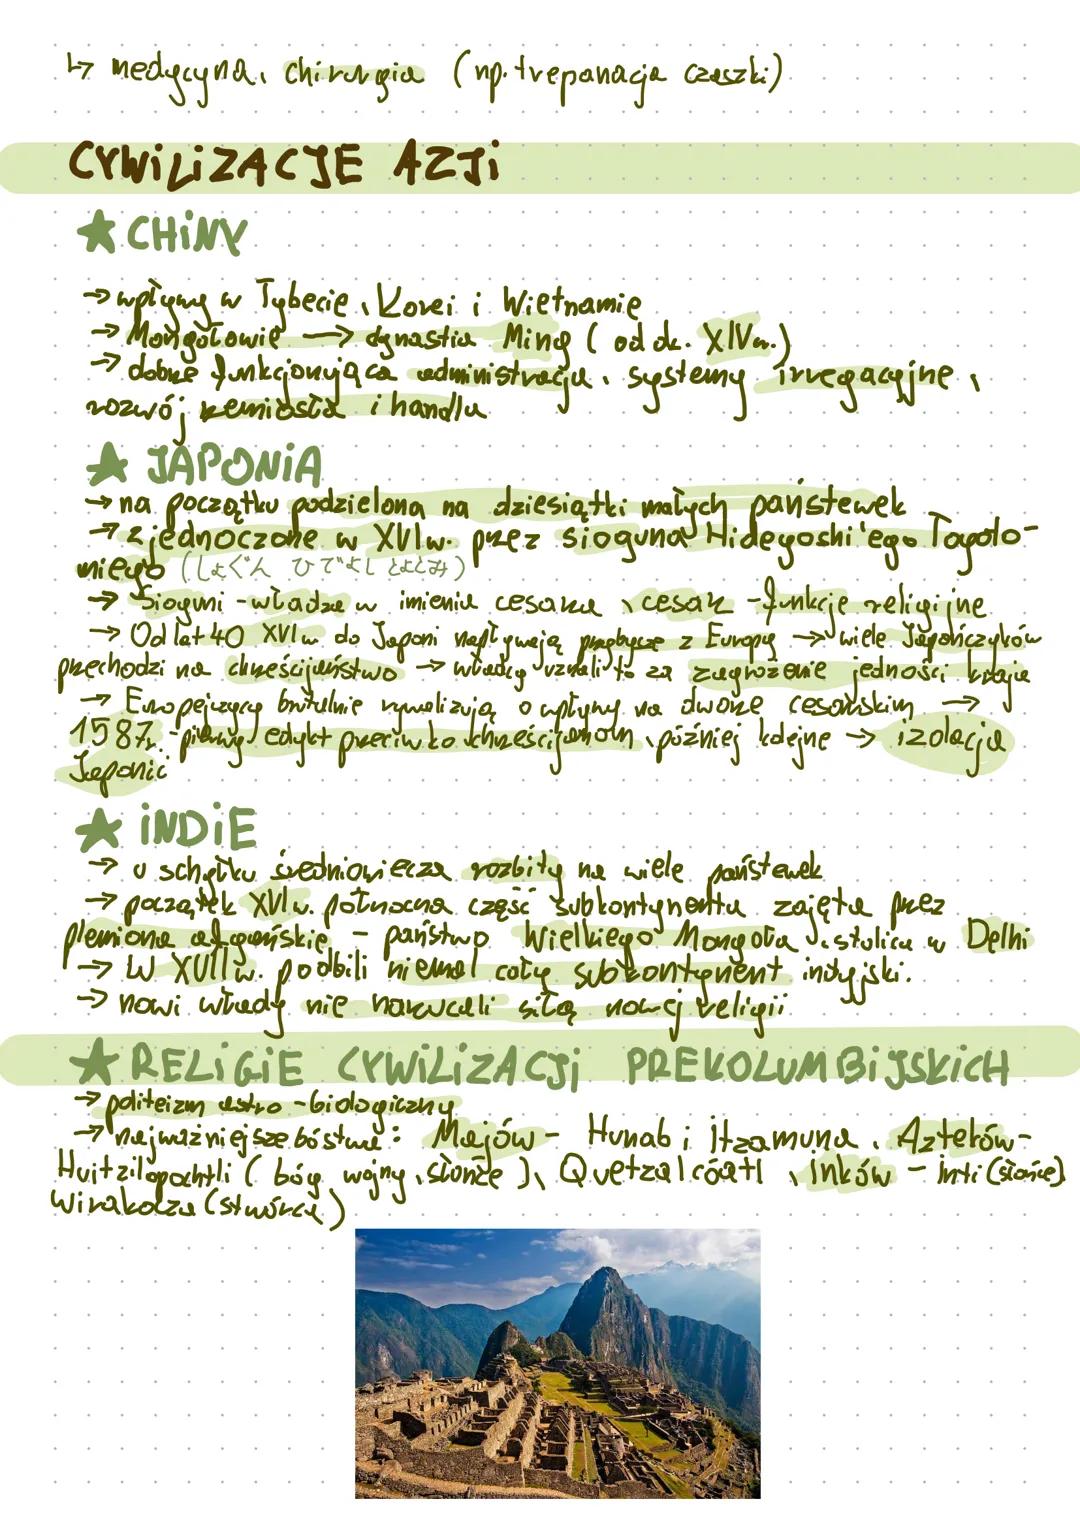 ↳ medycyna, chirurgia (np. trepanacja czaszki)
CYWILIZACJE AZJI
★ CHINY
→ wpływy w Tybecie, Korei i Wietnamie
→ Mongołowie → dynastia Ming (od dr. XIV w.)
→ dobrze funkcjonująca administracja, systemy irregacyjne,
rozwój rzemiosła i handlu
★ JAPONIA
→ na początku podzielona na dziesiątki małych państewek
→ zjednoczone w XVI w. przez sioguna Hideyoshi'ego Toyoto-
miego (しょぐん ひでよし とよとみ)
→ Sioguni - władza w imieniu cesarza, cesarz - funkcje religijne
→ Od lat 40 XVI w do Japoni napływają przybysze z Europy → wiele Japończyków
przechodzi na chrześcijaństwo → władcy uznali to za zagrożenie jedności kraju
→ Europejczycy brutalnie rywalizują o wpływy na dworze cesarskim →
1587r. - pierwszy edykt przeciwko chrześcijanom, później kolejne → izolacja
Japonii
★ INDIE
→ u schyłku średniowiecza rozbity na wiele państewek
→ początek XVI w. północna część subkontynentu zajęta przez
plemiona afgańskie - państwo Wielkiego Mongoła, stolica w Delhi
→ W XVII w. podbili niemal cały subkontynent indyjski.
→ nowi władcy nie narzucali siłą nowej religii
★ RELIGIE CYWILIZACJI PREKOLUMBIJSKICH
→ politeizm astro-biologiczny
→ najważniejsze bóstwa: Majów - Hunab i Itzamuna, Azteków -
Huitzilopochtli (bóg wojny, słońce), Quetzalcóatl, Inków - inti (słońce)
Wirakocza (stwórca)